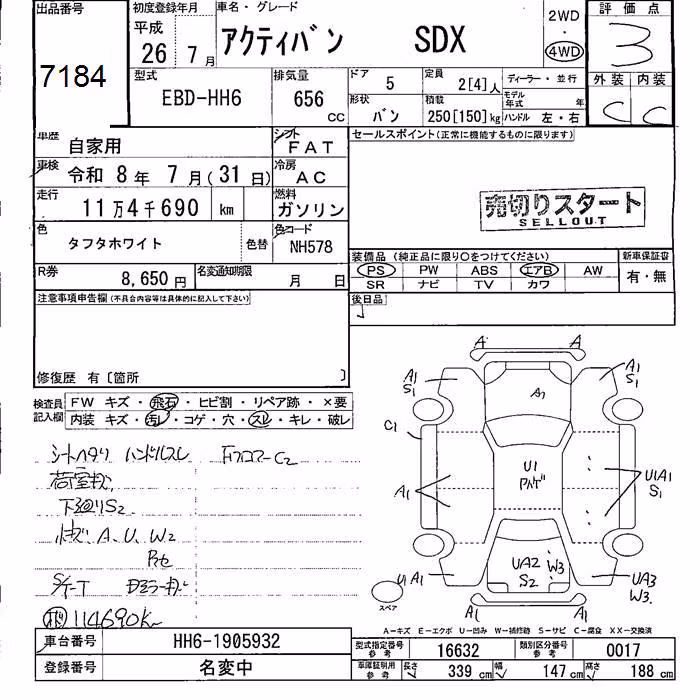 出品番号
7184
初度登録年月
平成
26 年 7 月
車名・グレード
アクティバン SDX
2WD
・
4WD
評価点
3
型式
EBD-HH6
排気量
656 CC
ドア 5
形状 バン
定員 2[4]人
積載 250[150]kg
ディーラー・並行
モデル年式 年
ハンドル 左・右
外装 内装
C C
車歴 自家用
シフト FAT
車検 令和 8 年 7 月(31 日)
冷房 AC
走行 11万4千690 km
燃料 ガソリン
色 タフタホワイト 色替
色コード NH578
R券 8,650円
名変通知期限 月 日
セールスポイント(正常に機能するものに限ります)
売切りスタート
SELLOUT
装備品(純正品に限り○をつけてください)
PS PW ABS エアB AW
SR ナビ TV カワ
新車保証書
有・無
後日品
注意事項申告欄(不具合内容等は具体的に記入して下さい)
修復歴 有〔箇所 〕
検査員記入欄
FW キズ・飛石・ヒビ割・リペア跡・×要
内装 キズ・汚レ・コゲ・穴・スレ・キレ・破レ
シートヘタリ ハンドルスレ
Fフロアー C2
荷室キズ
下廻りS2
A、U、W2
114690K
A A
A1 S1
A1
A1 S1
C1
U1
A1
U1A1 S1
UA2 S2
W3
U1 A1
UA3 W3
A1 A1
スペア
A-キズ E-エクボ U-凹み W-補修跡 S-サビ C-腐食 XX-交換済
車台番号 HH6-1905932
登録番号 名変中
型式指定番号 参考 16632
類別区分番号 参考 0017
車庫証明用 参考 長さ 339 cm 幅 147 cm 高さ 188 cm